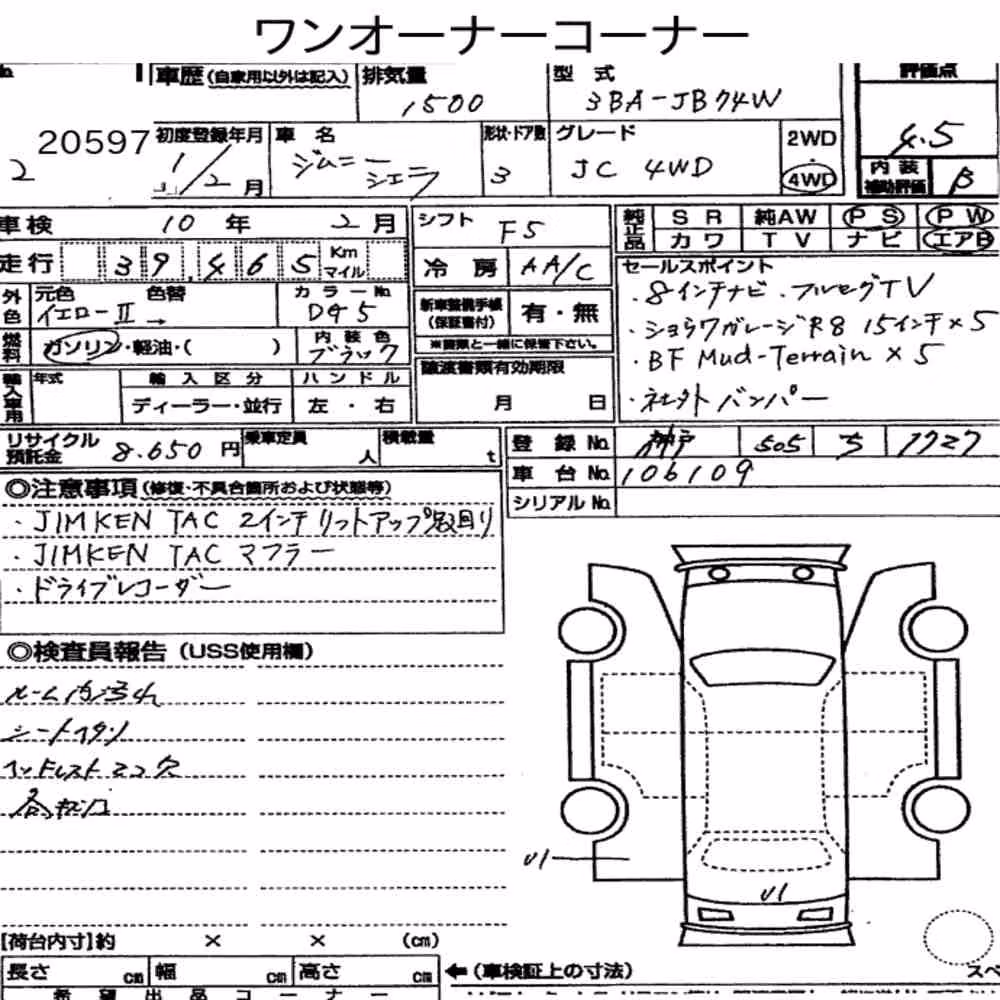 ワンオーナーコーナー
車歴(自家用以外は記入) 排気量 1500 型式 3BA-JB74W 評価点 4.5
20597
2
初度登録年月 /2月 車名 ジムニーシエラ 形状・ドア数 3 グレード JC 4WD 2WD・4WD 内装補助評価 B
車検 10年 2月 シフト F5 純正品 SR 純AW PS PW
カワ TV ナビ エアB
走行 39,465 Km マイル 冷房 AA/C
セールスポイント
・8インチナビ・フルセグTV
外色 元色 イエローII 色替 → カラーNo. D45 新車整備手帳(保証書付) 有・無
・ショウワガレージR8 15インチ×5
燃料 ガソリン・軽油・( ) 内装色 ブラック ※書類と一緒に保管下さい。
・BF Mud-Terrain×5
輸入車用 年式 輸入区分 ハンドル 譲渡書類有効期限
ディーラー・並行 左・右 月 日
・社外バンパー
リサイクル預託金 8.650円 乗車定員 人 積載量 t 登録No. 神戸 505 7727
車台No. 106109
シリアルNo.
◎注意事項(修復・不具合箇所および状態等)
・JIMKEN TAC 2インチリフトアップ
・JIMKEN TAC マフラー
・ドライブレコーダー
◎検査員報告(USS使用欄)
ルーム内汚れ
シート
U1
U1
[荷台内寸]約 × × (cm)
長さ cm 幅 cm 高さ cm ←(車検証上の寸法)
スペ
希望出品コーナー